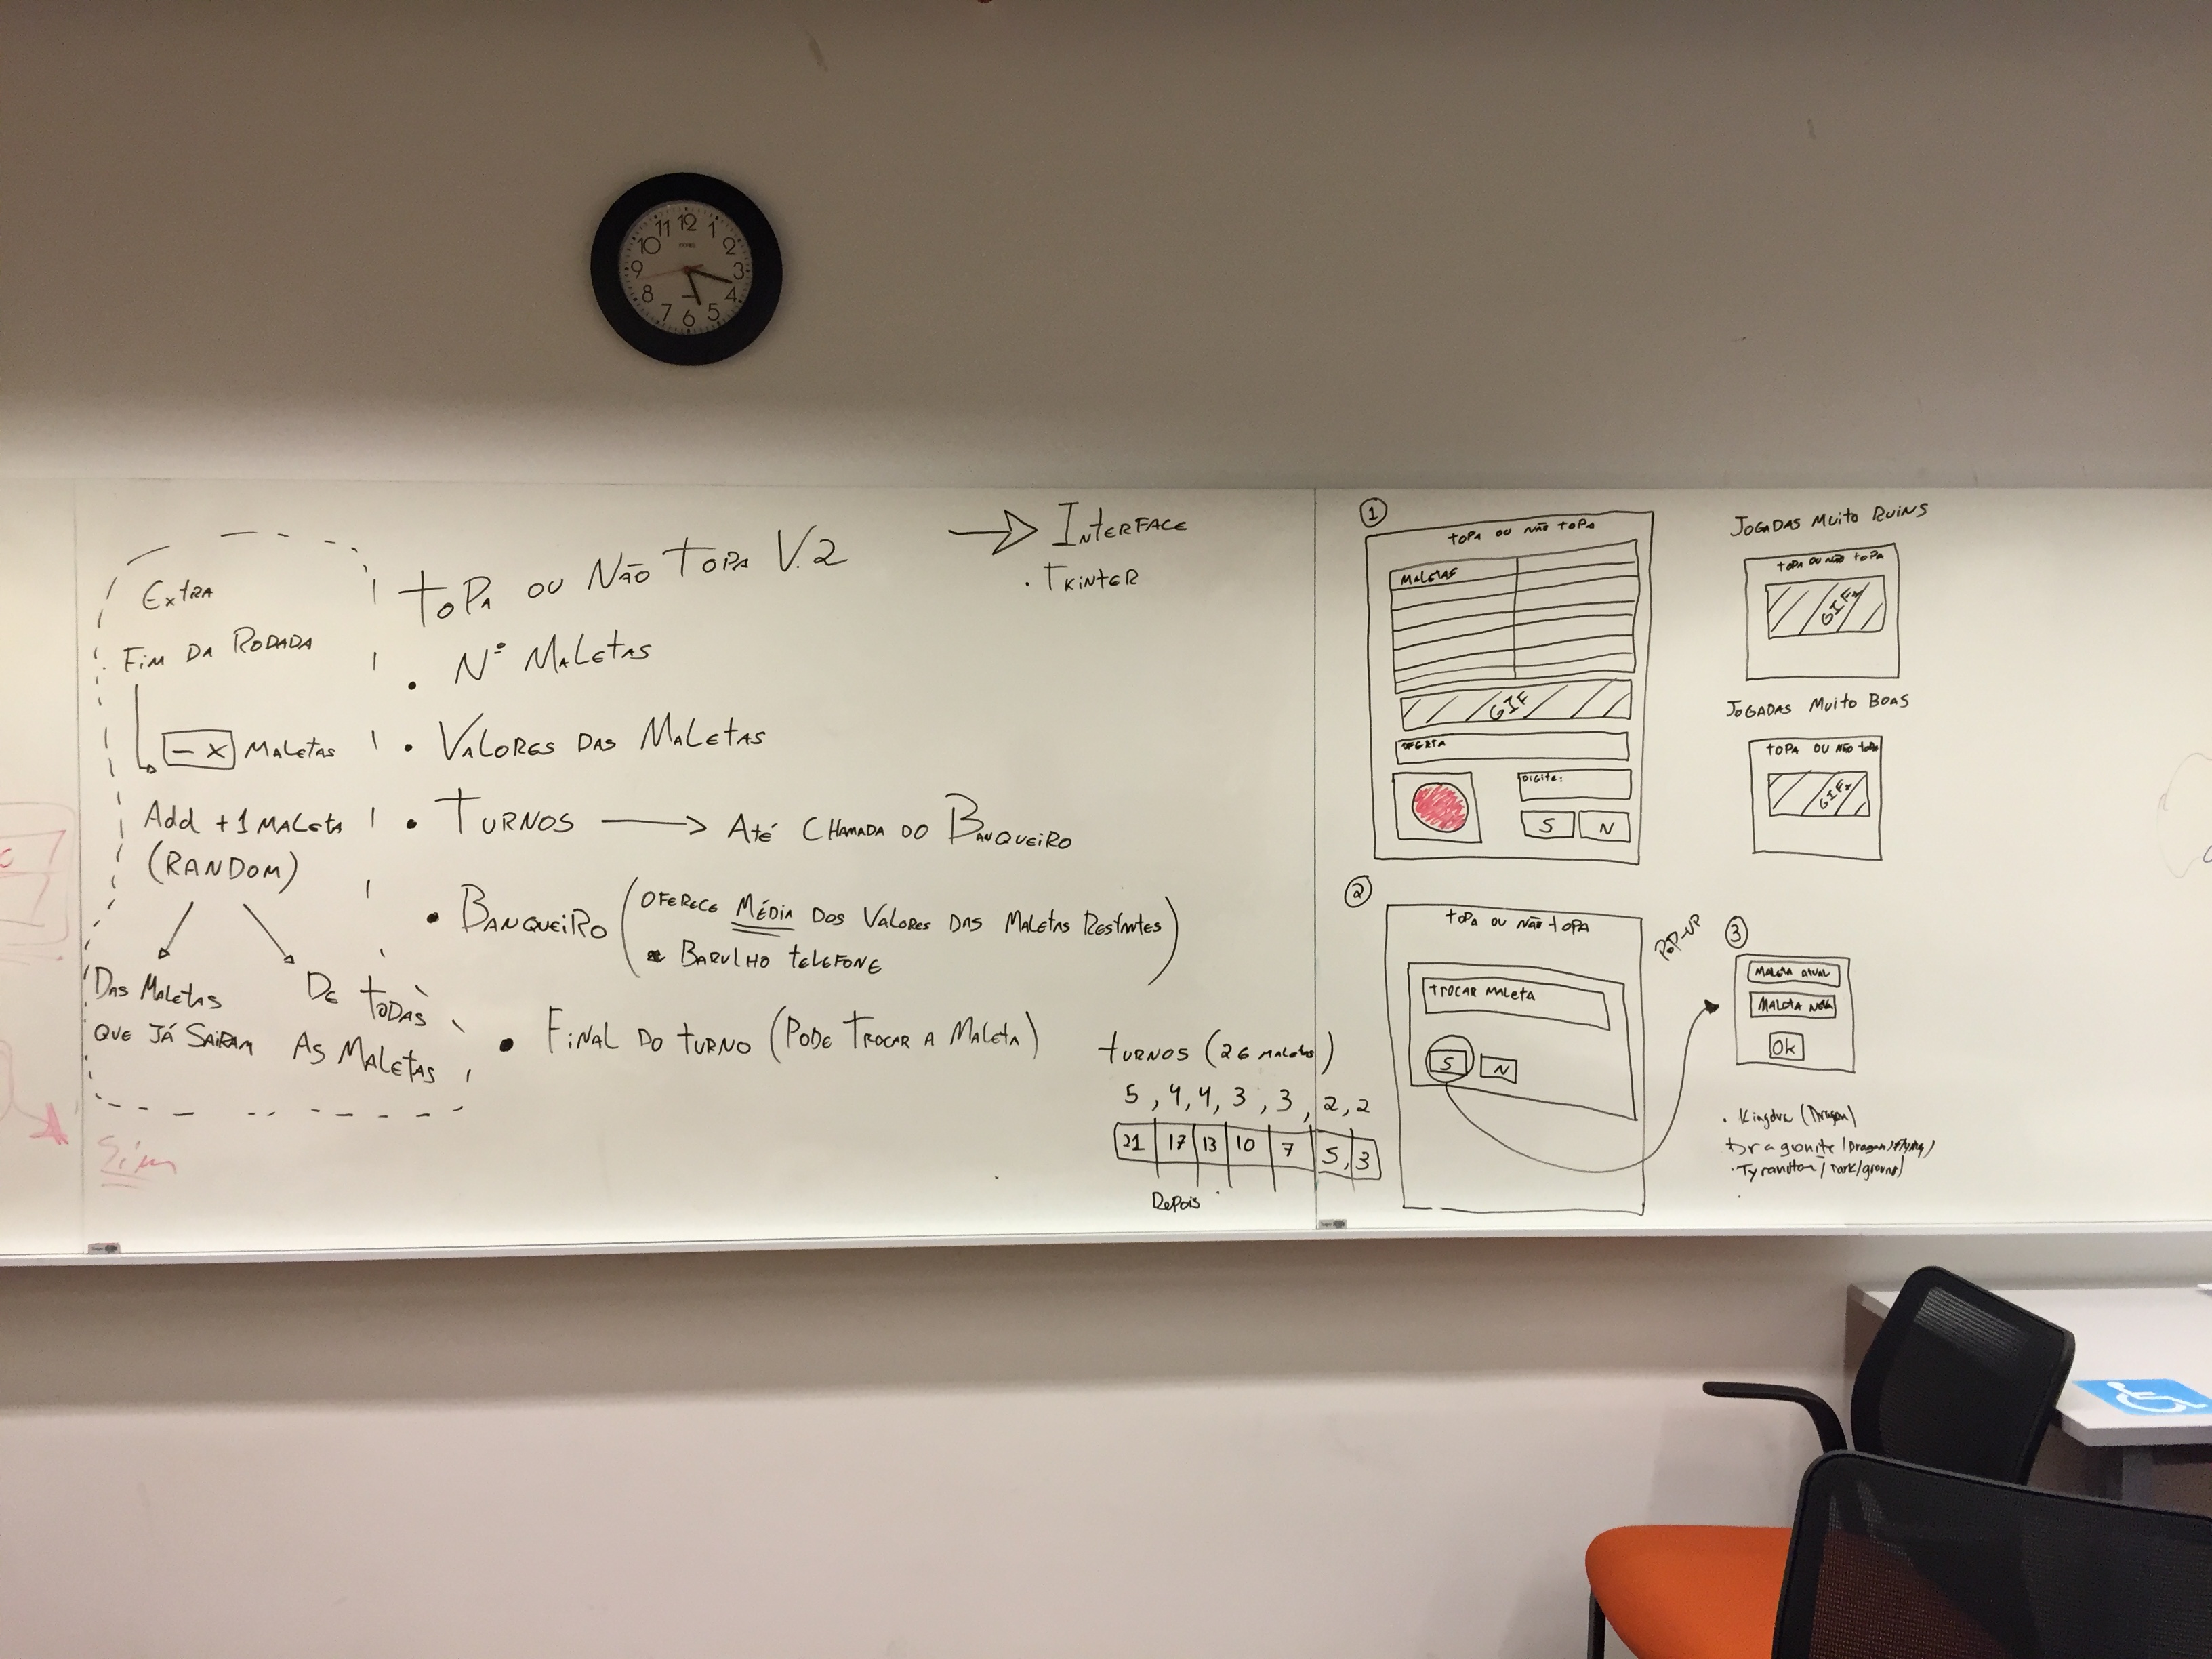 11 12 1
10 2
9 3
8 4
7 6 5
Extra
Fim da Rodada
- x Maletas
Add +1 Maleta
(RANDOM)
Das Maletas
que já sairam
De todas
As Maletas
Sim
Topa ou Não Topa V.2
• Nº Maletas
• Valores das Maletas
• Turnos → Até chamada do Banqueiro
• Banqueiro (oferece Média dos valores das maletas restantes
Barulho telefone)
• Final do turno (pode trocar a maleta)
→ Interface
. Tkinter
turnos (26 maletas)
5, 4, 4, 3, 3, 2, 2
21 17 13 10 7 5, 3
Depois
1
topa ou não topa
Maletas
GIF
oferta
Digite:
S N
2
topa ou não topa
trocar maleta
S N
pop-up
3
maleta atual
maleta nova
Ok
Jogadas muito ruins
topa ou não topa
Jogadas muito boas
topa ou não topa
. Kingdra (Dragon)
Dragonite (Dragon/Flying)